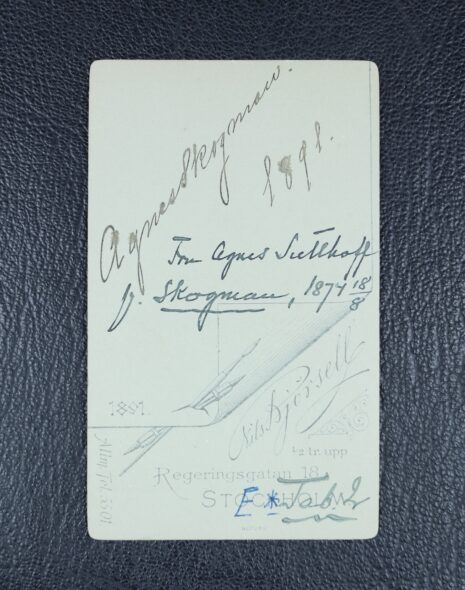 Agnes Skogman.
1891.
Fru Agnes Sutthoff
f. Skogman, 1874 18/8
1891.
Nils Björsell
½ tr. upp
Allm. Tel. 5501
Regeringsgatan 18
STOCKHOLM
E * Tab 2